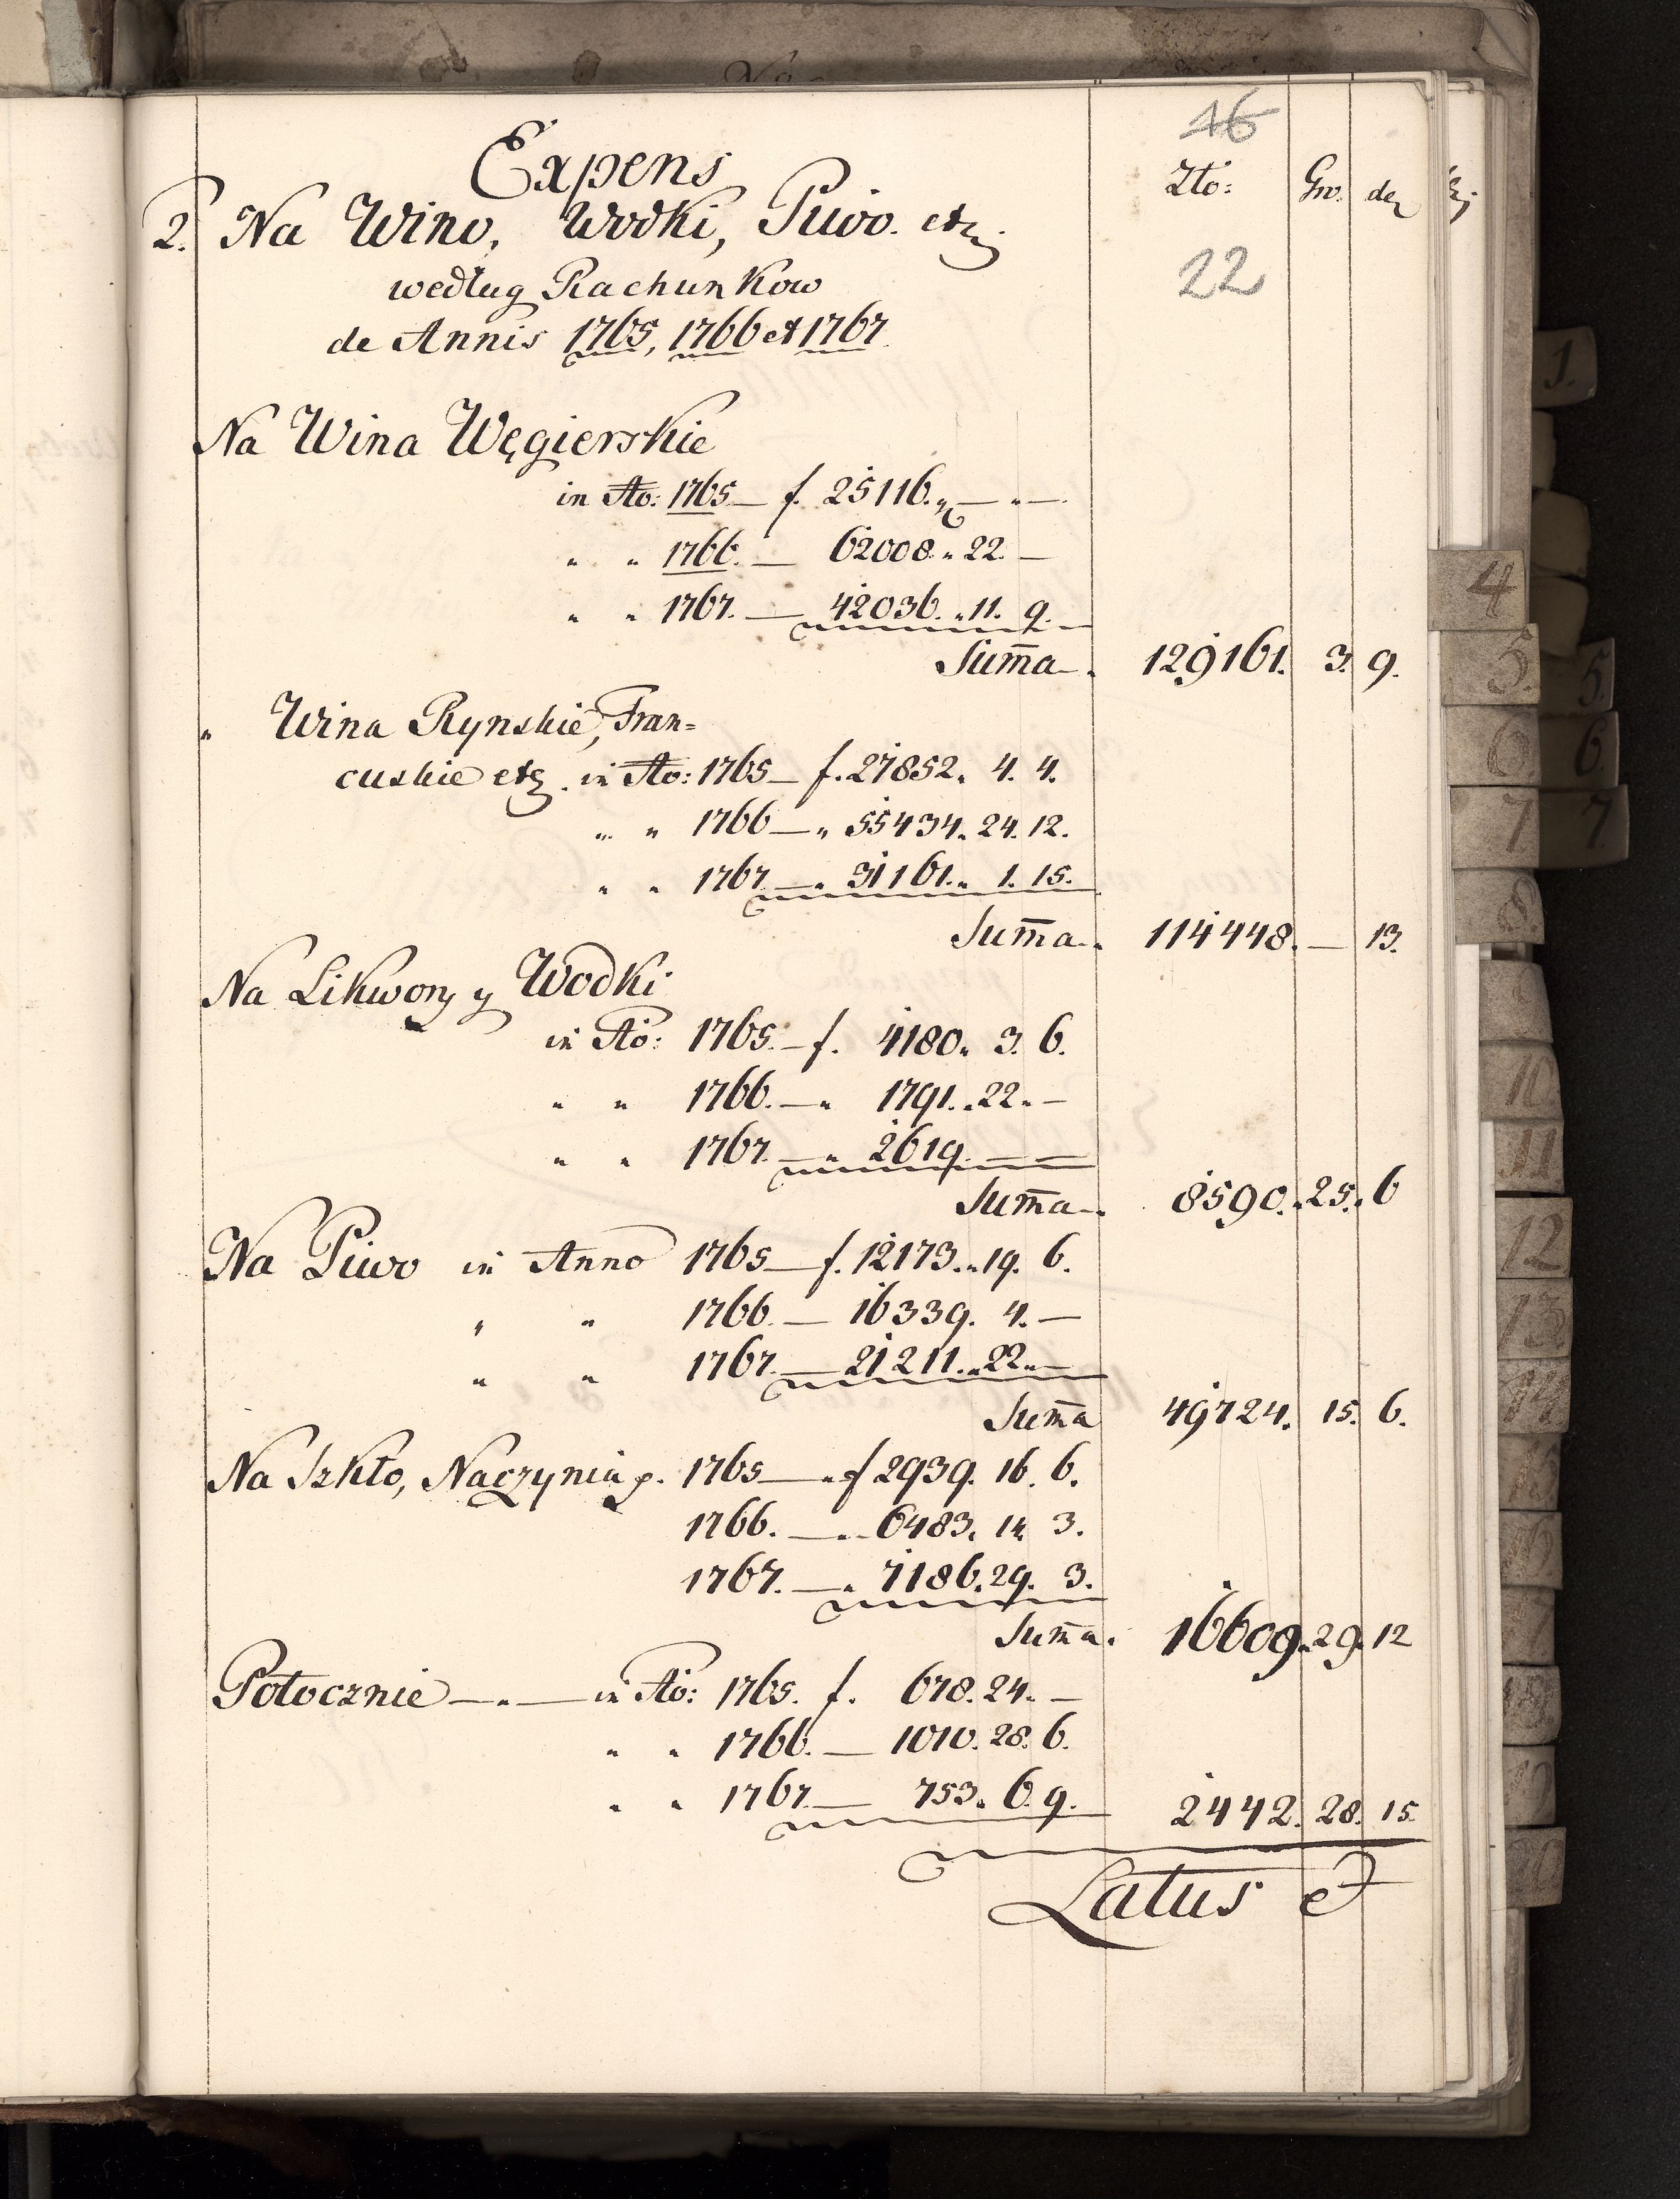 16
Expens
Zło: Gro. den
2. Na Wino, Wodki, Piwo. etz.
22
według Rachunkow
de Annis 1765, 1766 et 1767
Na Wina Węgierskie
in Ao: 1765 — f. 25116. „ — „ —
„ „ 1766. — 62008. „ 22 —
„ „ 1767. — 42036. „ 11. 9.
Sum̄a 129161. 3. 9.
„ Wina Rynskie, Fran=
cuskie etz. in Ao: 1765 — f. 27852. 4. 4.
„ „ 1766 — „ 55434. 24. 12.
„ „ 1767 — „ 31161. „ 1. 15.
Sum̄a 114448. — 13.
Na Likwory y Wodki
in Ao: 1765. — f. 4180. 3. 6.
„ „ 1766. — „ 1791. „ 22. —
„ „ 1767. — „ 2619. — —
Sum̄a 8590. 25. 6
Na Piwo in Anno 1765 — f. 12173. „ 19. 6.
„ „ 1766. — 16339. 4. —
„ „ 1767. — 21211. „ 22 „ —
Sum̄a 49724. 15. 6.
Na Szkło, Naczynia p. 1765 — „ f 2939. 16. 6.
1766. — „ 6483. 14. 3.
1767. — „ 7186. 29. 3.
Sum̄a. 16609. 29. 12
Potocznie — „ — in Ao: 1765. f. 678. 24. —
„ „ 1766. — 1010. 28. 6.
„ „ 1767 — 753. 6. 9. 2442. 28. 15.
Latus
1.
4
5.
5.
6
6.
7
7.
8
10
11
12
13
14